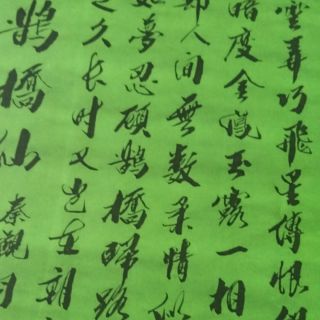 雲弄巧飛星傳恨銀
暗度金風玉露一相
却人間無数柔情似
如夢忍顧鵲橋歸路
是久长时又岂在朝
鵲橋仙 秦觀